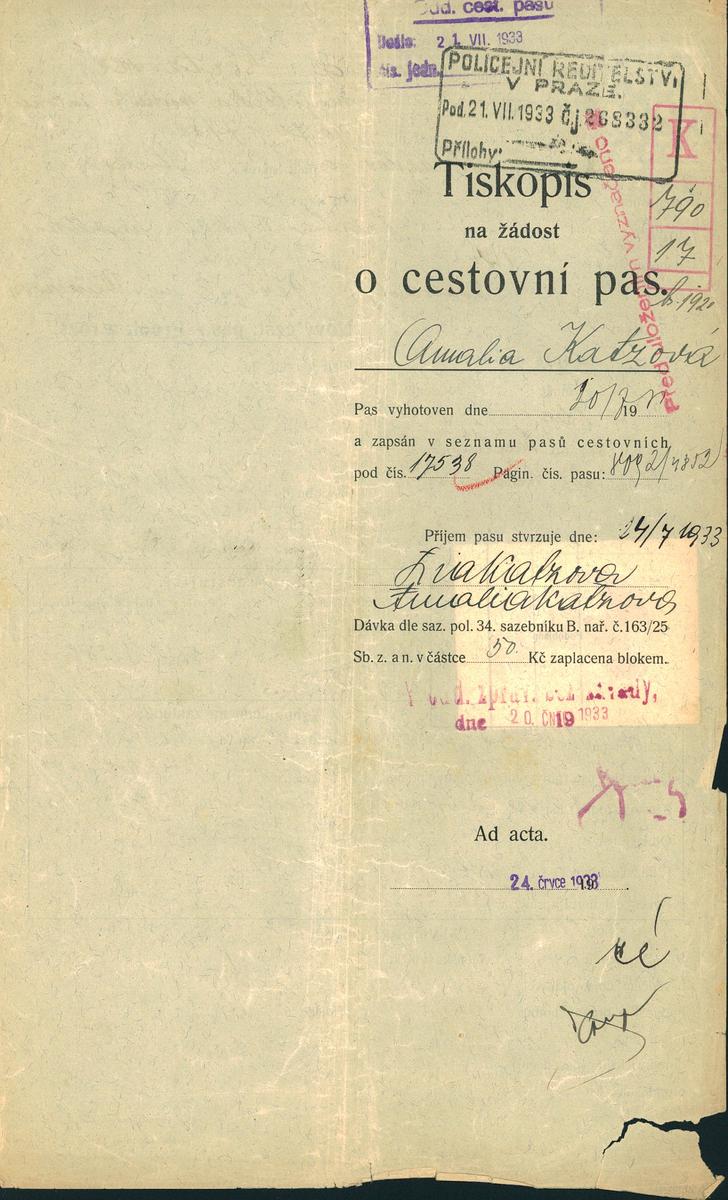 Odd. cest. pasů
Došlo: 21. VII. 1933
čís. jedn.
POLICEJNÍ ŘEDITELSTVÍ
V PRAZE.
Pod. 21. VII. 1933 č.j. 268332
Přílohy:
K
790
17
Tiskopis
na žádost
o cestovní pas.
Amalia Katzová
Pas vyhotoven dne 20/7 19
a zapsán v seznamu pasů cestovních
pod čís. 17538 Pagin. čís. pasu:
Příjem pasu stvrzuje dne: 24/7 1933
Lia Katzova
Amalia Katzova
Dávka dle saz. pol. 34. sazebníku B. nař. č. 163/25
Sb. z. a n. v částce 50. Kč zaplacena blokem.
dne 20. 19 1933
Ad acta.
24. črvce 1933